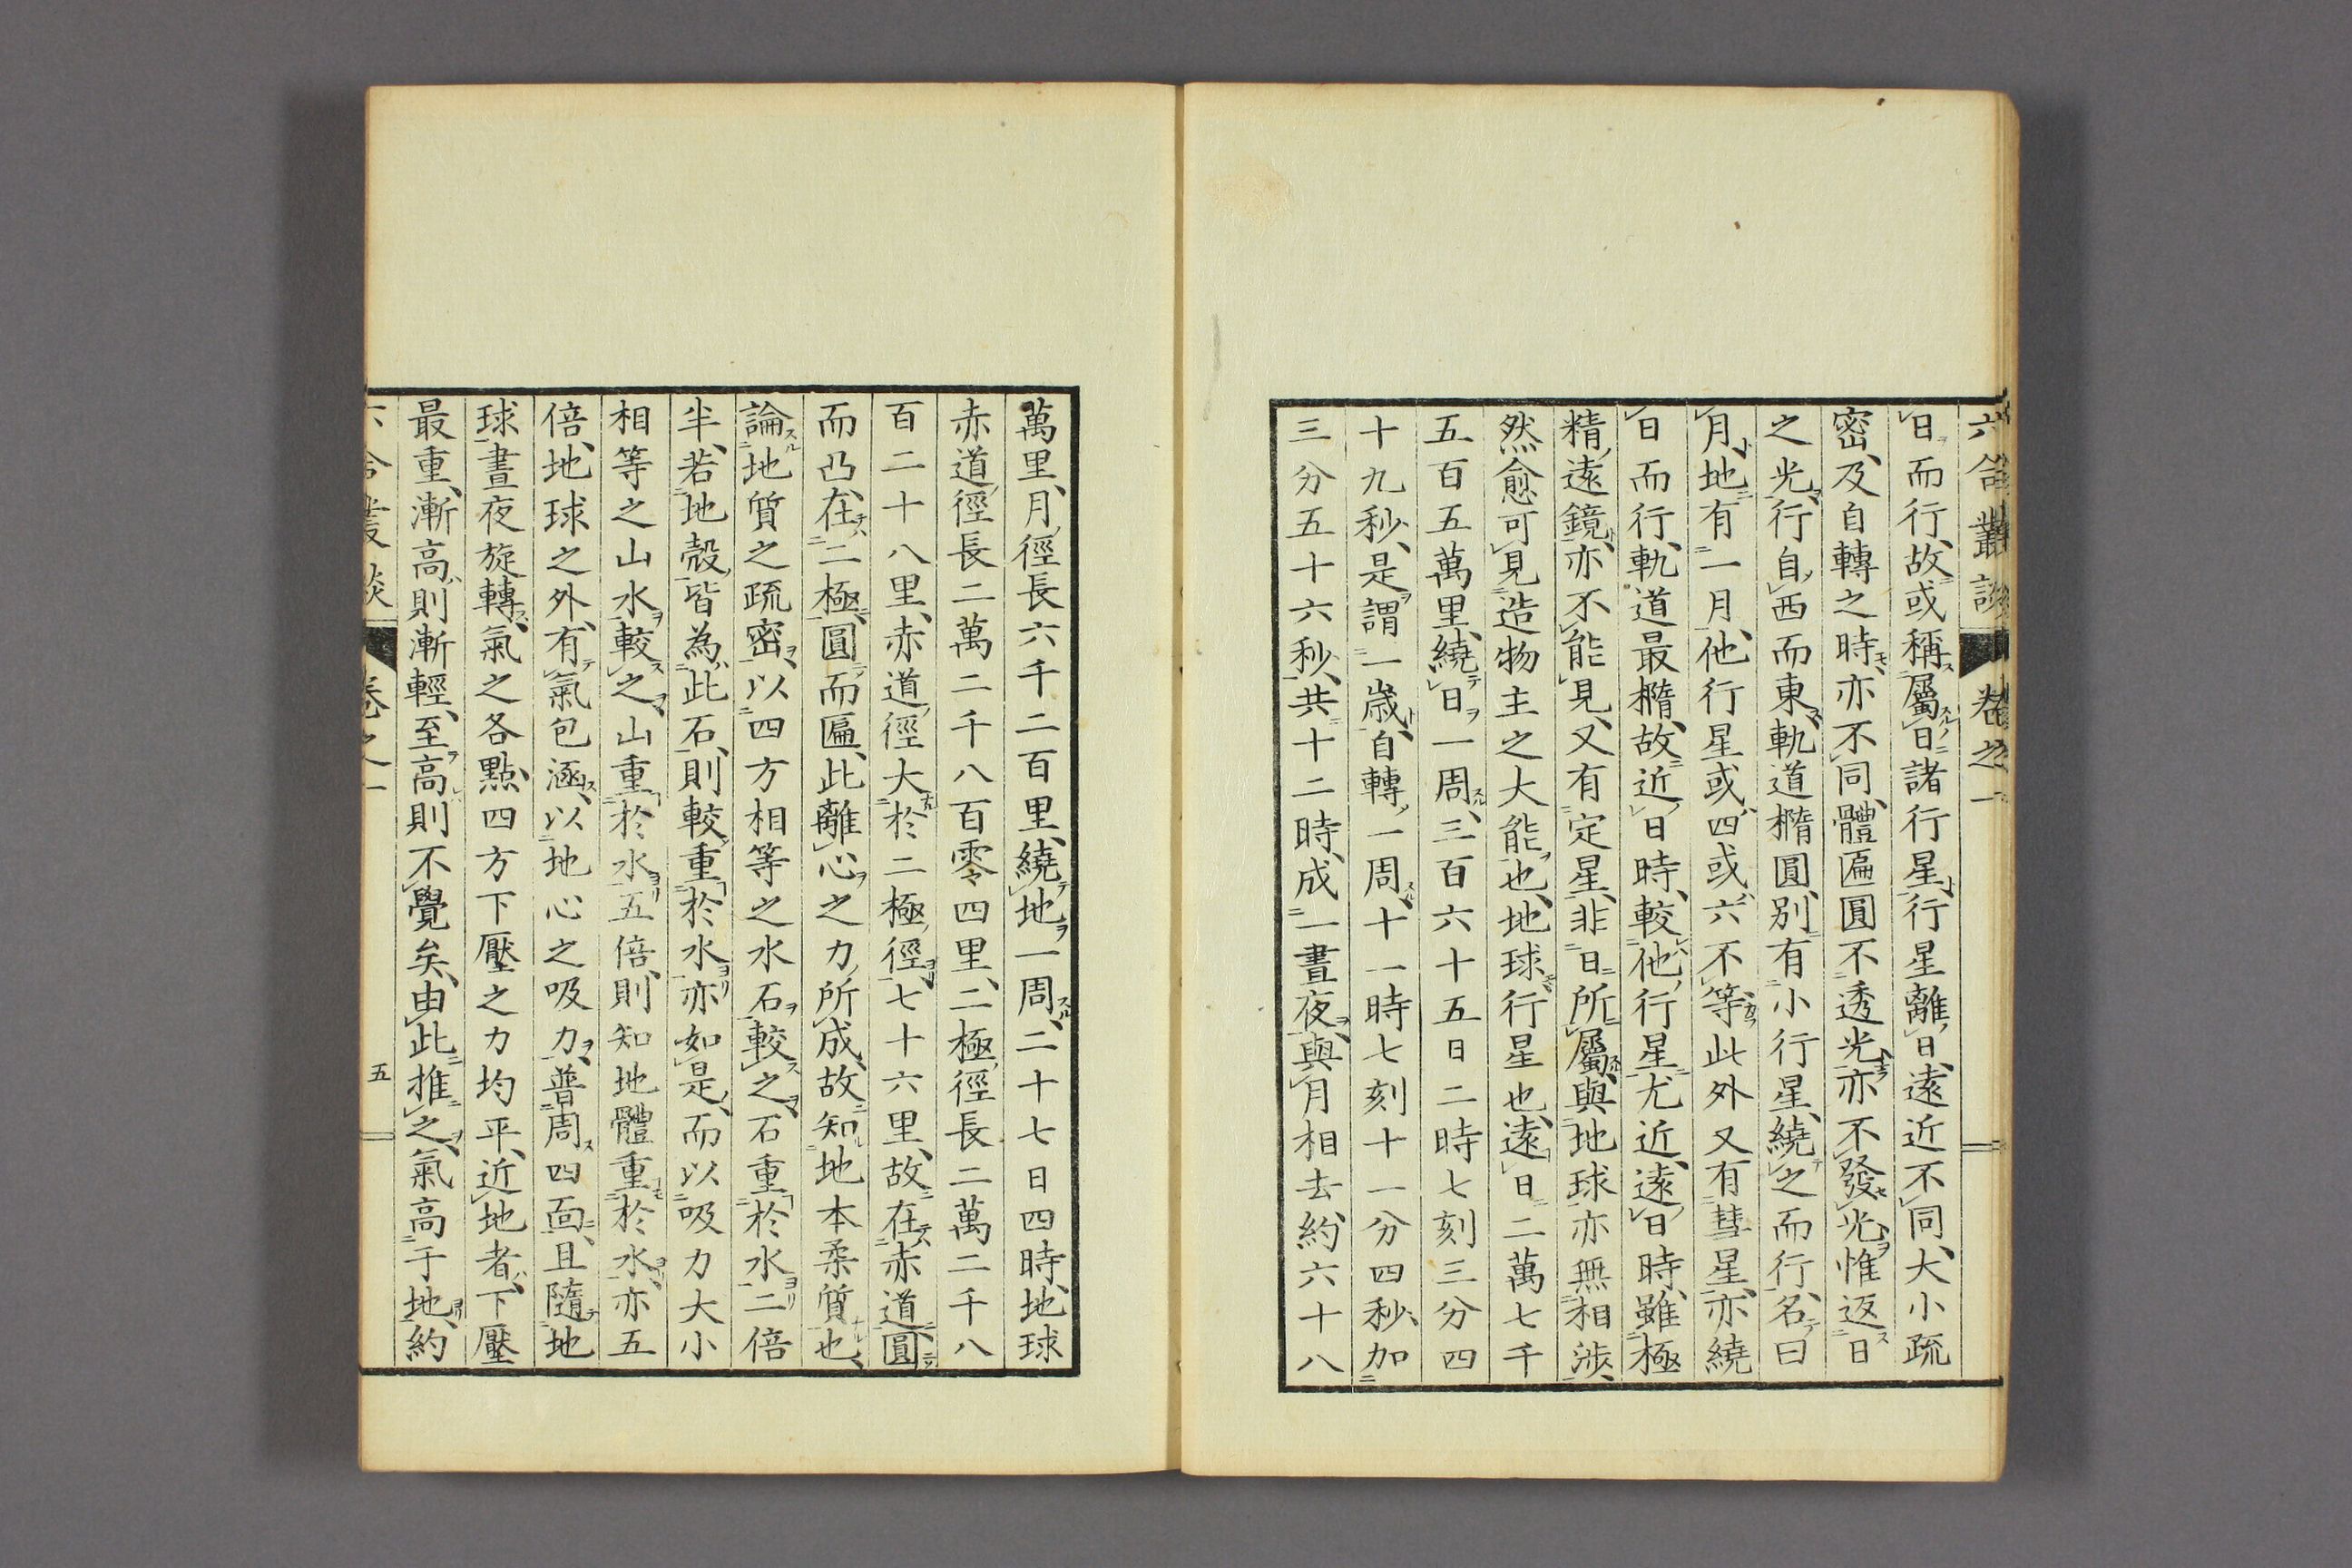 六合叢談 卷之一
日而行、故或稱屬日諸行星、行星離日、遠近不同、大小疏
密、及自轉之時、亦不同、體匾圓不透光、亦不發光、惟返日
之光、行自西而東、軌道橢圓、別有小行星、繞之而行、名曰
月、地有一月、他行星或四或六不等、此外又有彗星、亦繞
日而行、軌道最橢、故近日時、較他行星尤近、遠日時、雖極
精遠鏡、亦不能見、又有定星、非日所屬、與地球亦無相涉、
然愈可見造物主之大能也、地球行星也、遠日二萬七千
五百五萬里、繞日一周、三百六十五日二時七刻三分四
十九秒、是謂一歲、自轉一周、十一時七刻十一分四秒、加
三分五十六秒、共十二時、成一晝夜、與月相去、約六十八
萬里、月徑長六千二百里、繞地一周、二十七日四時、地球
赤道徑長二萬二千八百零四里、二極徑長二萬二千八
百二十八里、赤道徑大於二極徑、七十六里、故在赤道圓
而凸、在二極圓而匾、此離心之力所成、故知地本柔質也、
論地質之疏密、以四方相等之水石較之、石重於水二倍
半、若地殼皆為此石、則較重於水亦如是、而以吸力大小
相等之山水較之、山重於水五倍、則知地體重於水、亦五
倍、地球之外、有氣包涵、以地心之吸力、普周四面、且隨地
球晝夜旋轉、氣之各點、四方下壓之力均平、近地者、下壓
最重、漸高則漸輕、至高則不覺矣、由此推之、氣高于地、約
六合叢談 卷之一 五